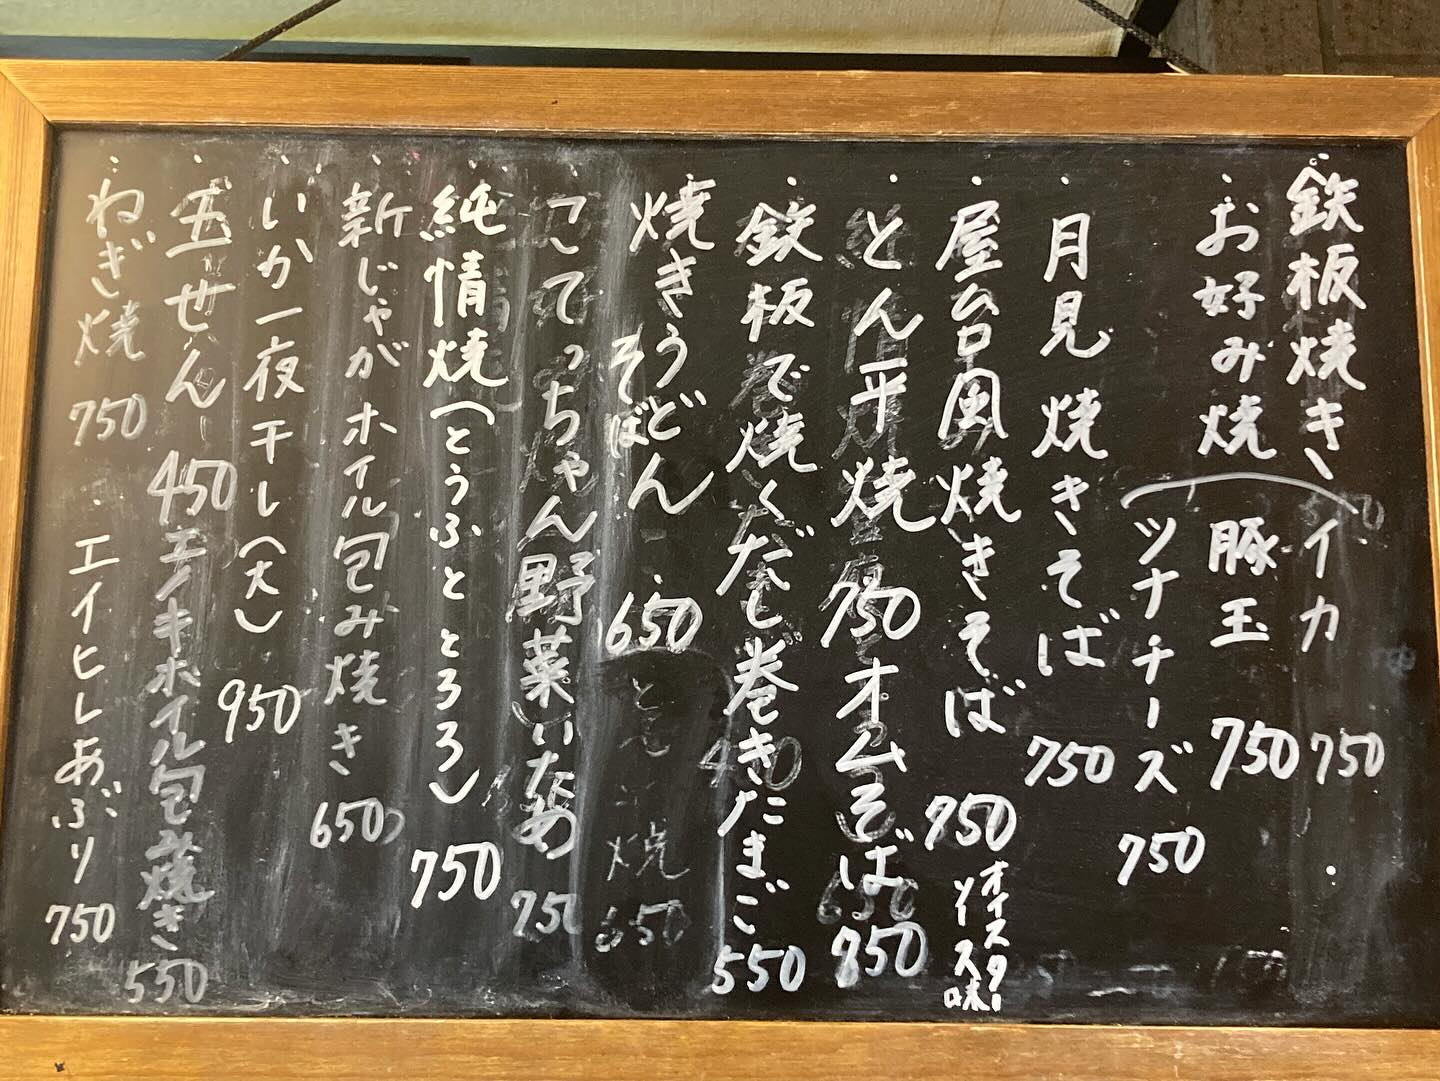 鉄板焼き
お好み焼
イカ 750
豚玉 750
ツナチーズ 750
月見焼きそば 750
屋台風焼きそば
オイスターソース味
とん平焼 750
オムそば 850
鉄板で焼くだし巻きたまご 550
焼きうどん 650
そば
こてっちゃん野菜いため 750
純情焼(とうふととろろ) 750
新じゃがホイル包み焼き 650
いか一夜干し(大) 950
玉せん 450
エノキホイル包み焼き 550
ねぎ焼 750
エイヒレあぶり 750